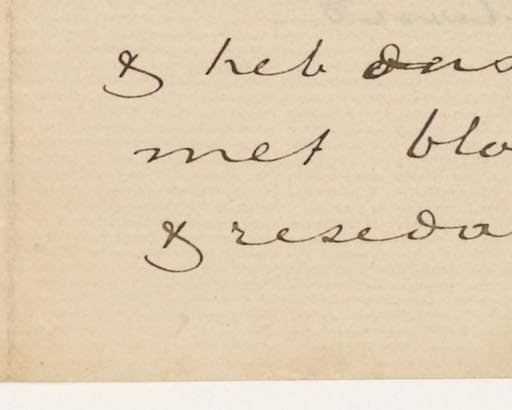 & heb ons
met blo
& reseda